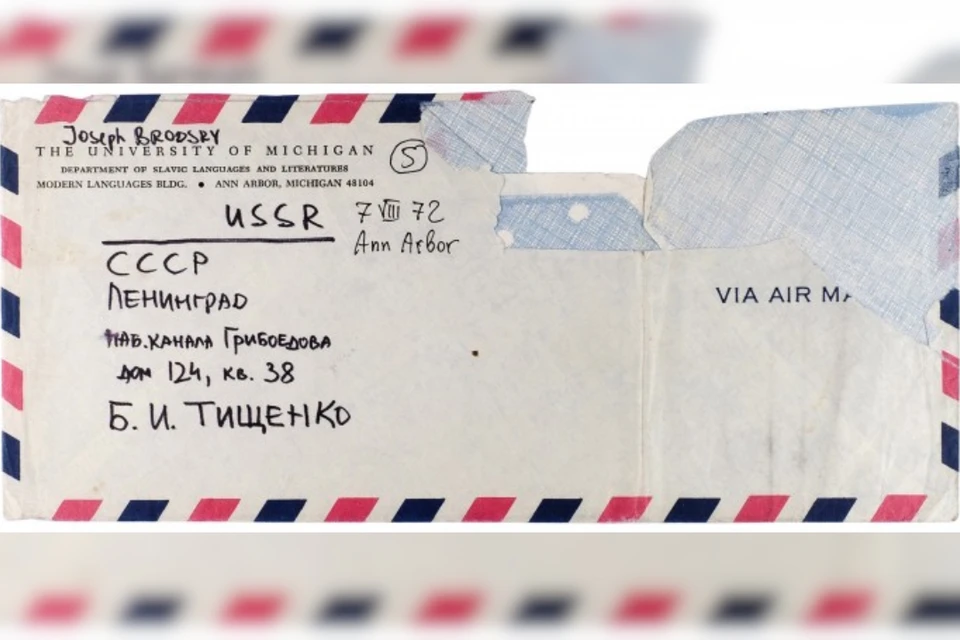 Joseph BRODSKY
THE UNIVERSITY OF MICHIGAN
5
DEPARTMENT OF SLAVIC LANGUAGES AND LITERATURES
MODERN LANGUAGES BLDG. • ANN ARBOR, MICHIGAN 48104
USSR
7 VIII 72
Ann Arbor
СССР
ЛЕНИНГРАД
НАБ. КАНАЛА ГРИБОЕДОВА
ДОМ 124, КВ. 38
Б. И. ТИЩЕНКО
VIA AIR MA